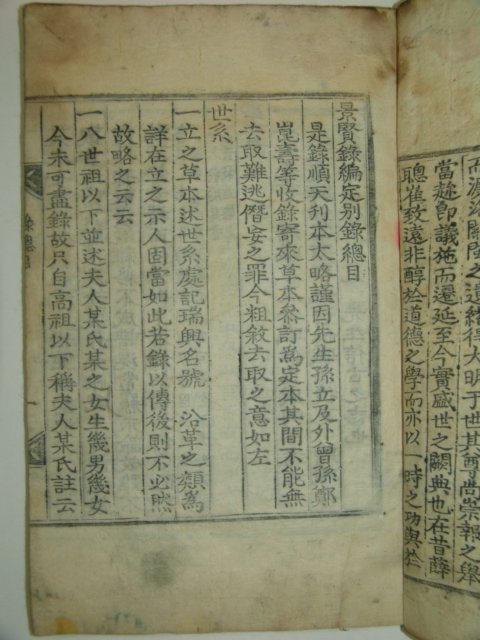 而濂洛關閩之遺緖得大明于世其尊尚崇報之擧
當趂卽議施而遷延至今實盛世之闕典也在昔薛
聰崔致遠非醇於道德之學而亦以一時之功與
景賢錄編定別錄總目
是錄順天刋本太略謹因先生孫立及外曾孫鄭
崑壽等收錄寄來草本叅訂爲定本其間不能無
去取難逃僭妄之罪今粗敘去取之意如左
世系
一立之草本述世系處記瑞興名號 沿革之頗爲
詳在立之示人固當如此若錄以傳後則不必然
故略之云云
一八世祖以下並述夫人某氏某之女生幾男幾女
今未可盡錄故只自高祖以下稱夫人某氏註云